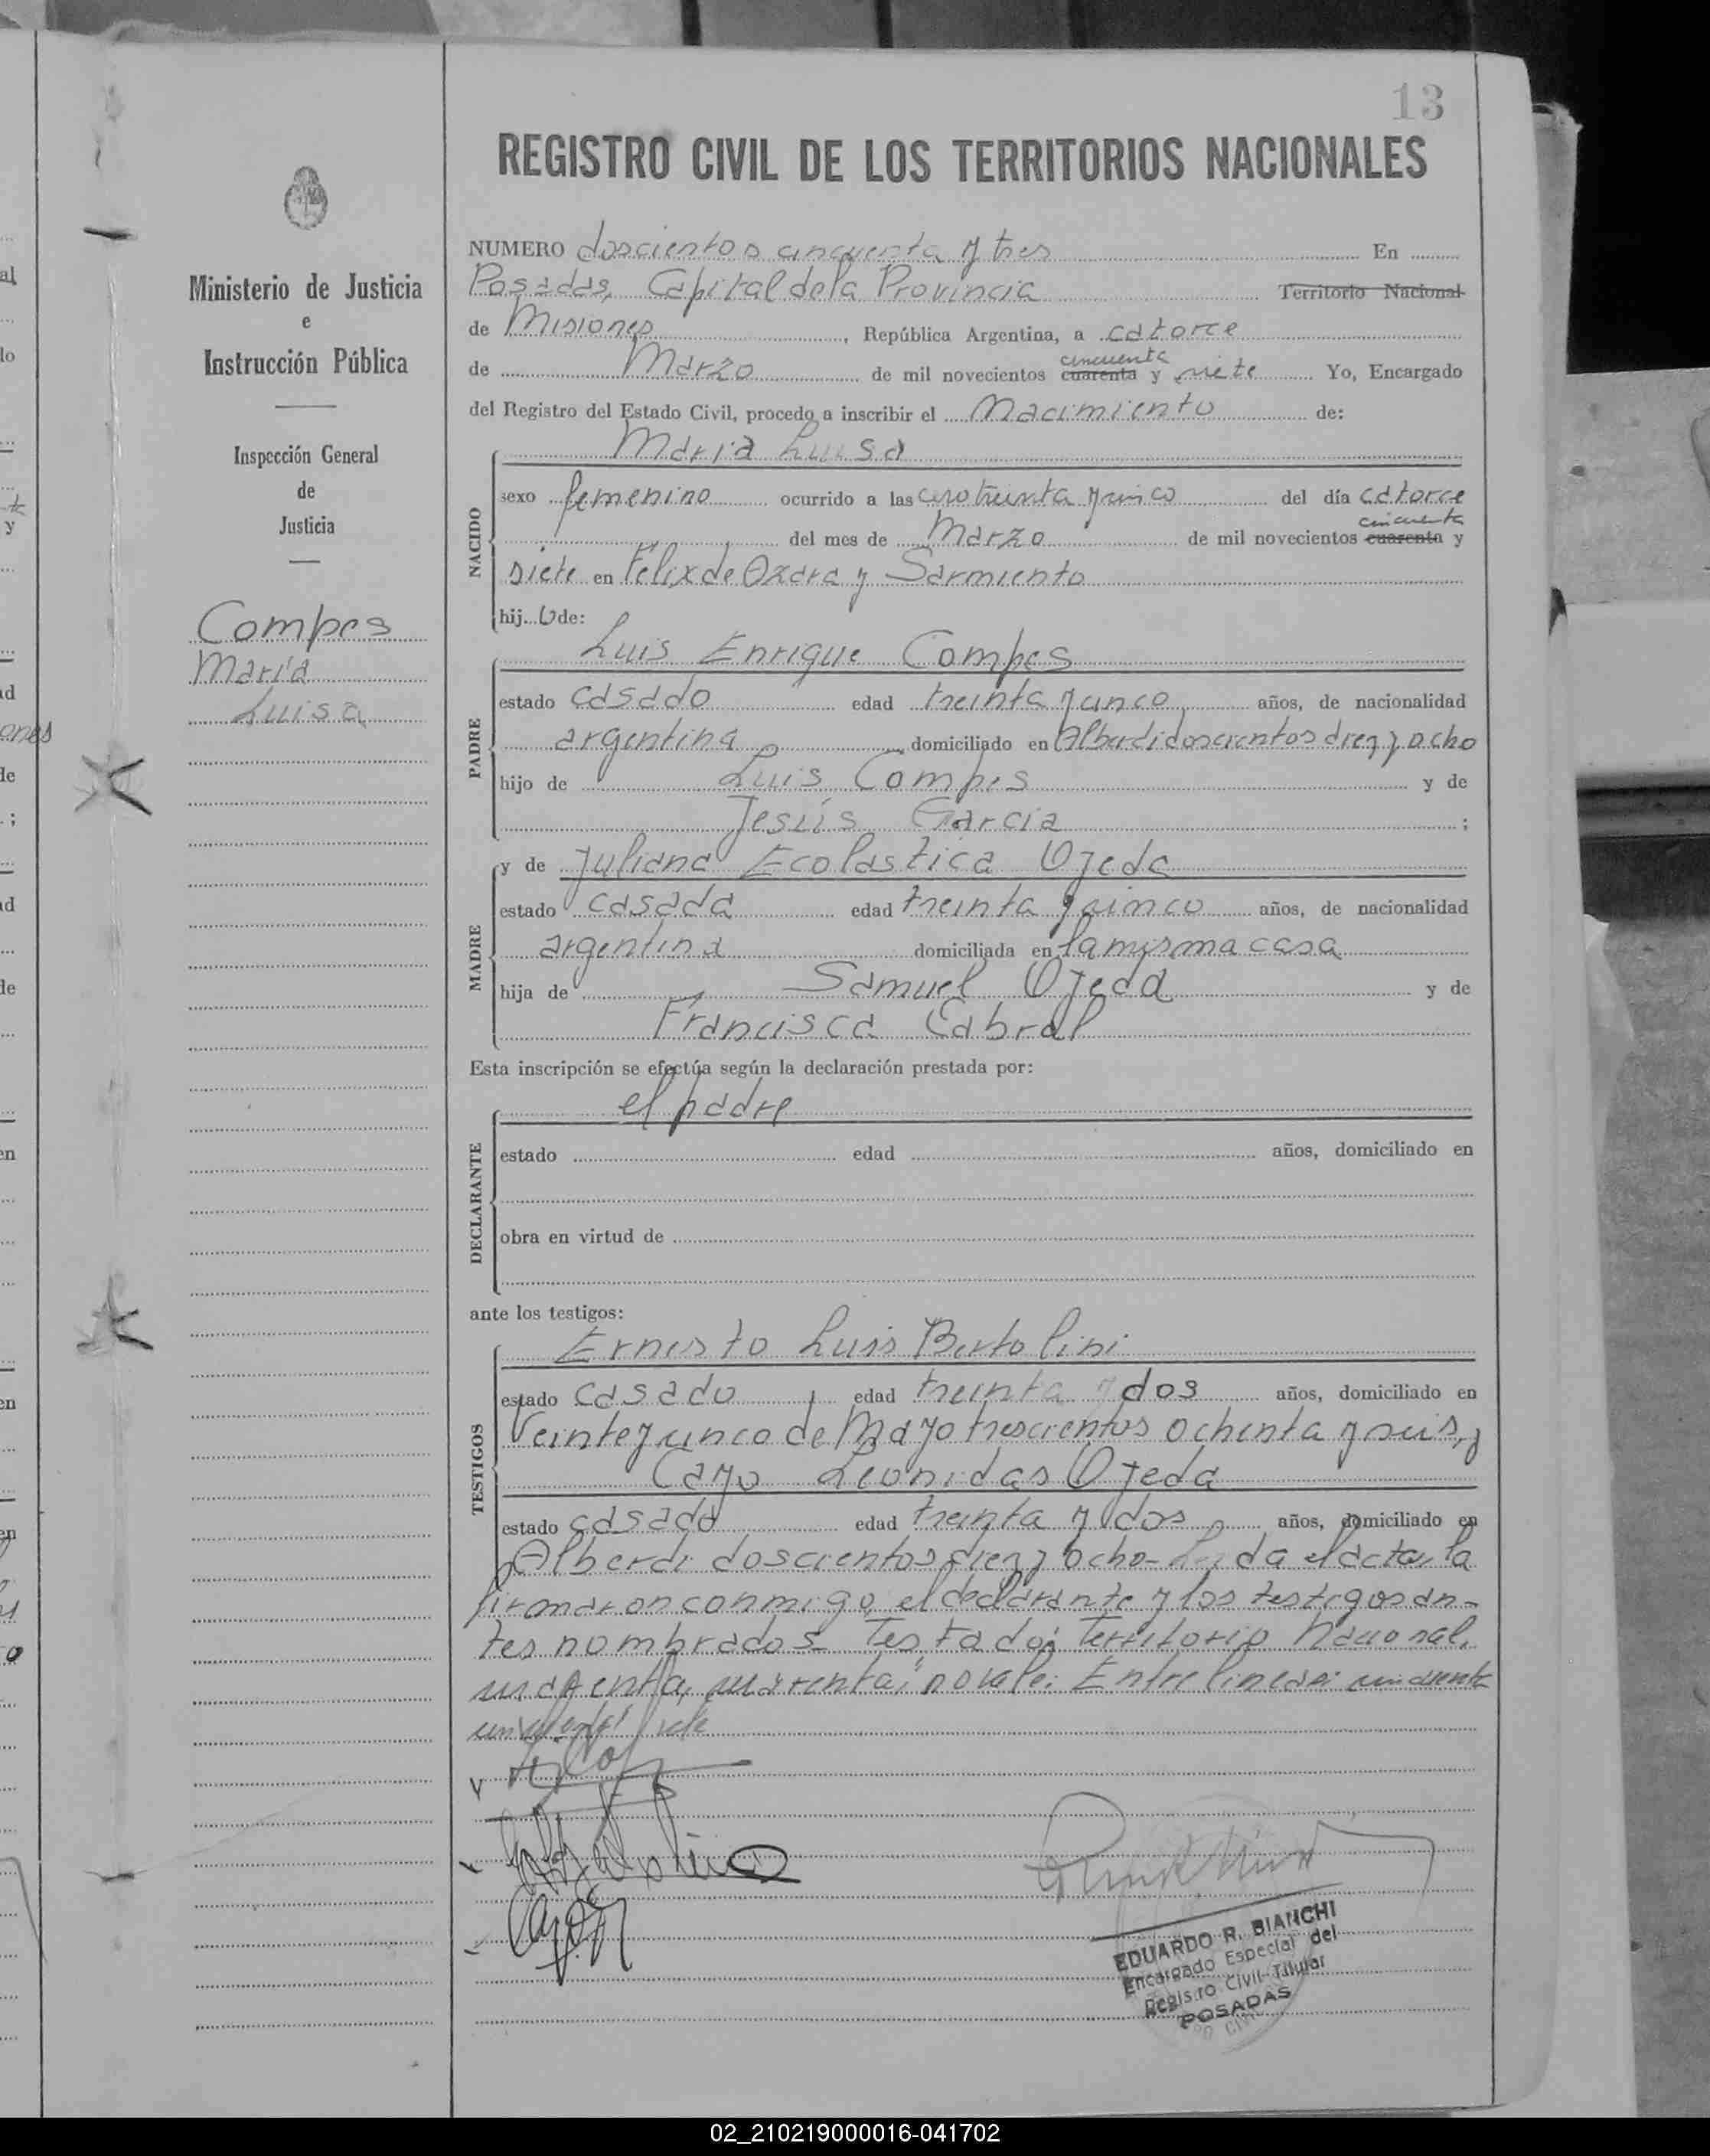 13
REGISTRO CIVIL DE LOS TERRITORIOS NACIONALES
Ministerio de Justicia
e
Instrucción Pública
Inspección General
de
Justicia
Compes
María
Luisa
NUMERO doscientos cincuenta y tres En
Posadas, Capital de la Provincia Territorio Nacional
de Misiones, República Argentina, a catorce
cincuenta
de Marzo de mil novecientos cuarenta y siete Yo, Encargado
del Registro del Estado Civil, procedo a inscribir el Nacimiento de:
NACIDO
María Luisa
sexo femenino ocurrido a las cero treinta y cinco del día catorce
cincuenta
del mes de Marzo de mil novecientos cuarenta y
siete en Félix de Azara y Sarmiento
hij de:
PADRE
Luis Enrique Compes
estado casado edad treinta y cinco años, de nacionalidad
argentina domiciliado en Alberdi doscientos diez y ocho
hijo de Luis Compes y de
Jesús Garcia ;
MADRE
y de Juliana Ecolastica Ojeda
estado casada edad treinta y cinco años, de nacionalidad
argentina domiciliada en la misma casa
hija de Samuel Ojeda y de
Francisca Cabral
Esta inscripción se efectúa según la declaración prestada por:
DECLARANTE
el padre
estado edad años, domiciliado en
obra en virtud de
ante los testigos:
TESTIGOS
Ernesto Luis Bertolini
estado casado edad treinta y dos años, domiciliado en
Veinte y cinco de Mayo trescientos ochenta y seis, y
Cayo Leonidas Ojeda
estado casado edad treinta y dos años, domiciliado en
Alberdi doscientos diez y ocho- Leida el acta, la
firmaron conmigo, el declarante y los testigos an-
tes nombrados- Testado: Territorio Nacional,
cuarenta, cuarenta, no vale: Entre lineas: cincuenta
cincuenta vale
EDUARDO R. BIANCHI
Encargado Especial del
Registro Civil-Titular
POSADAS
02_210219000016-041702